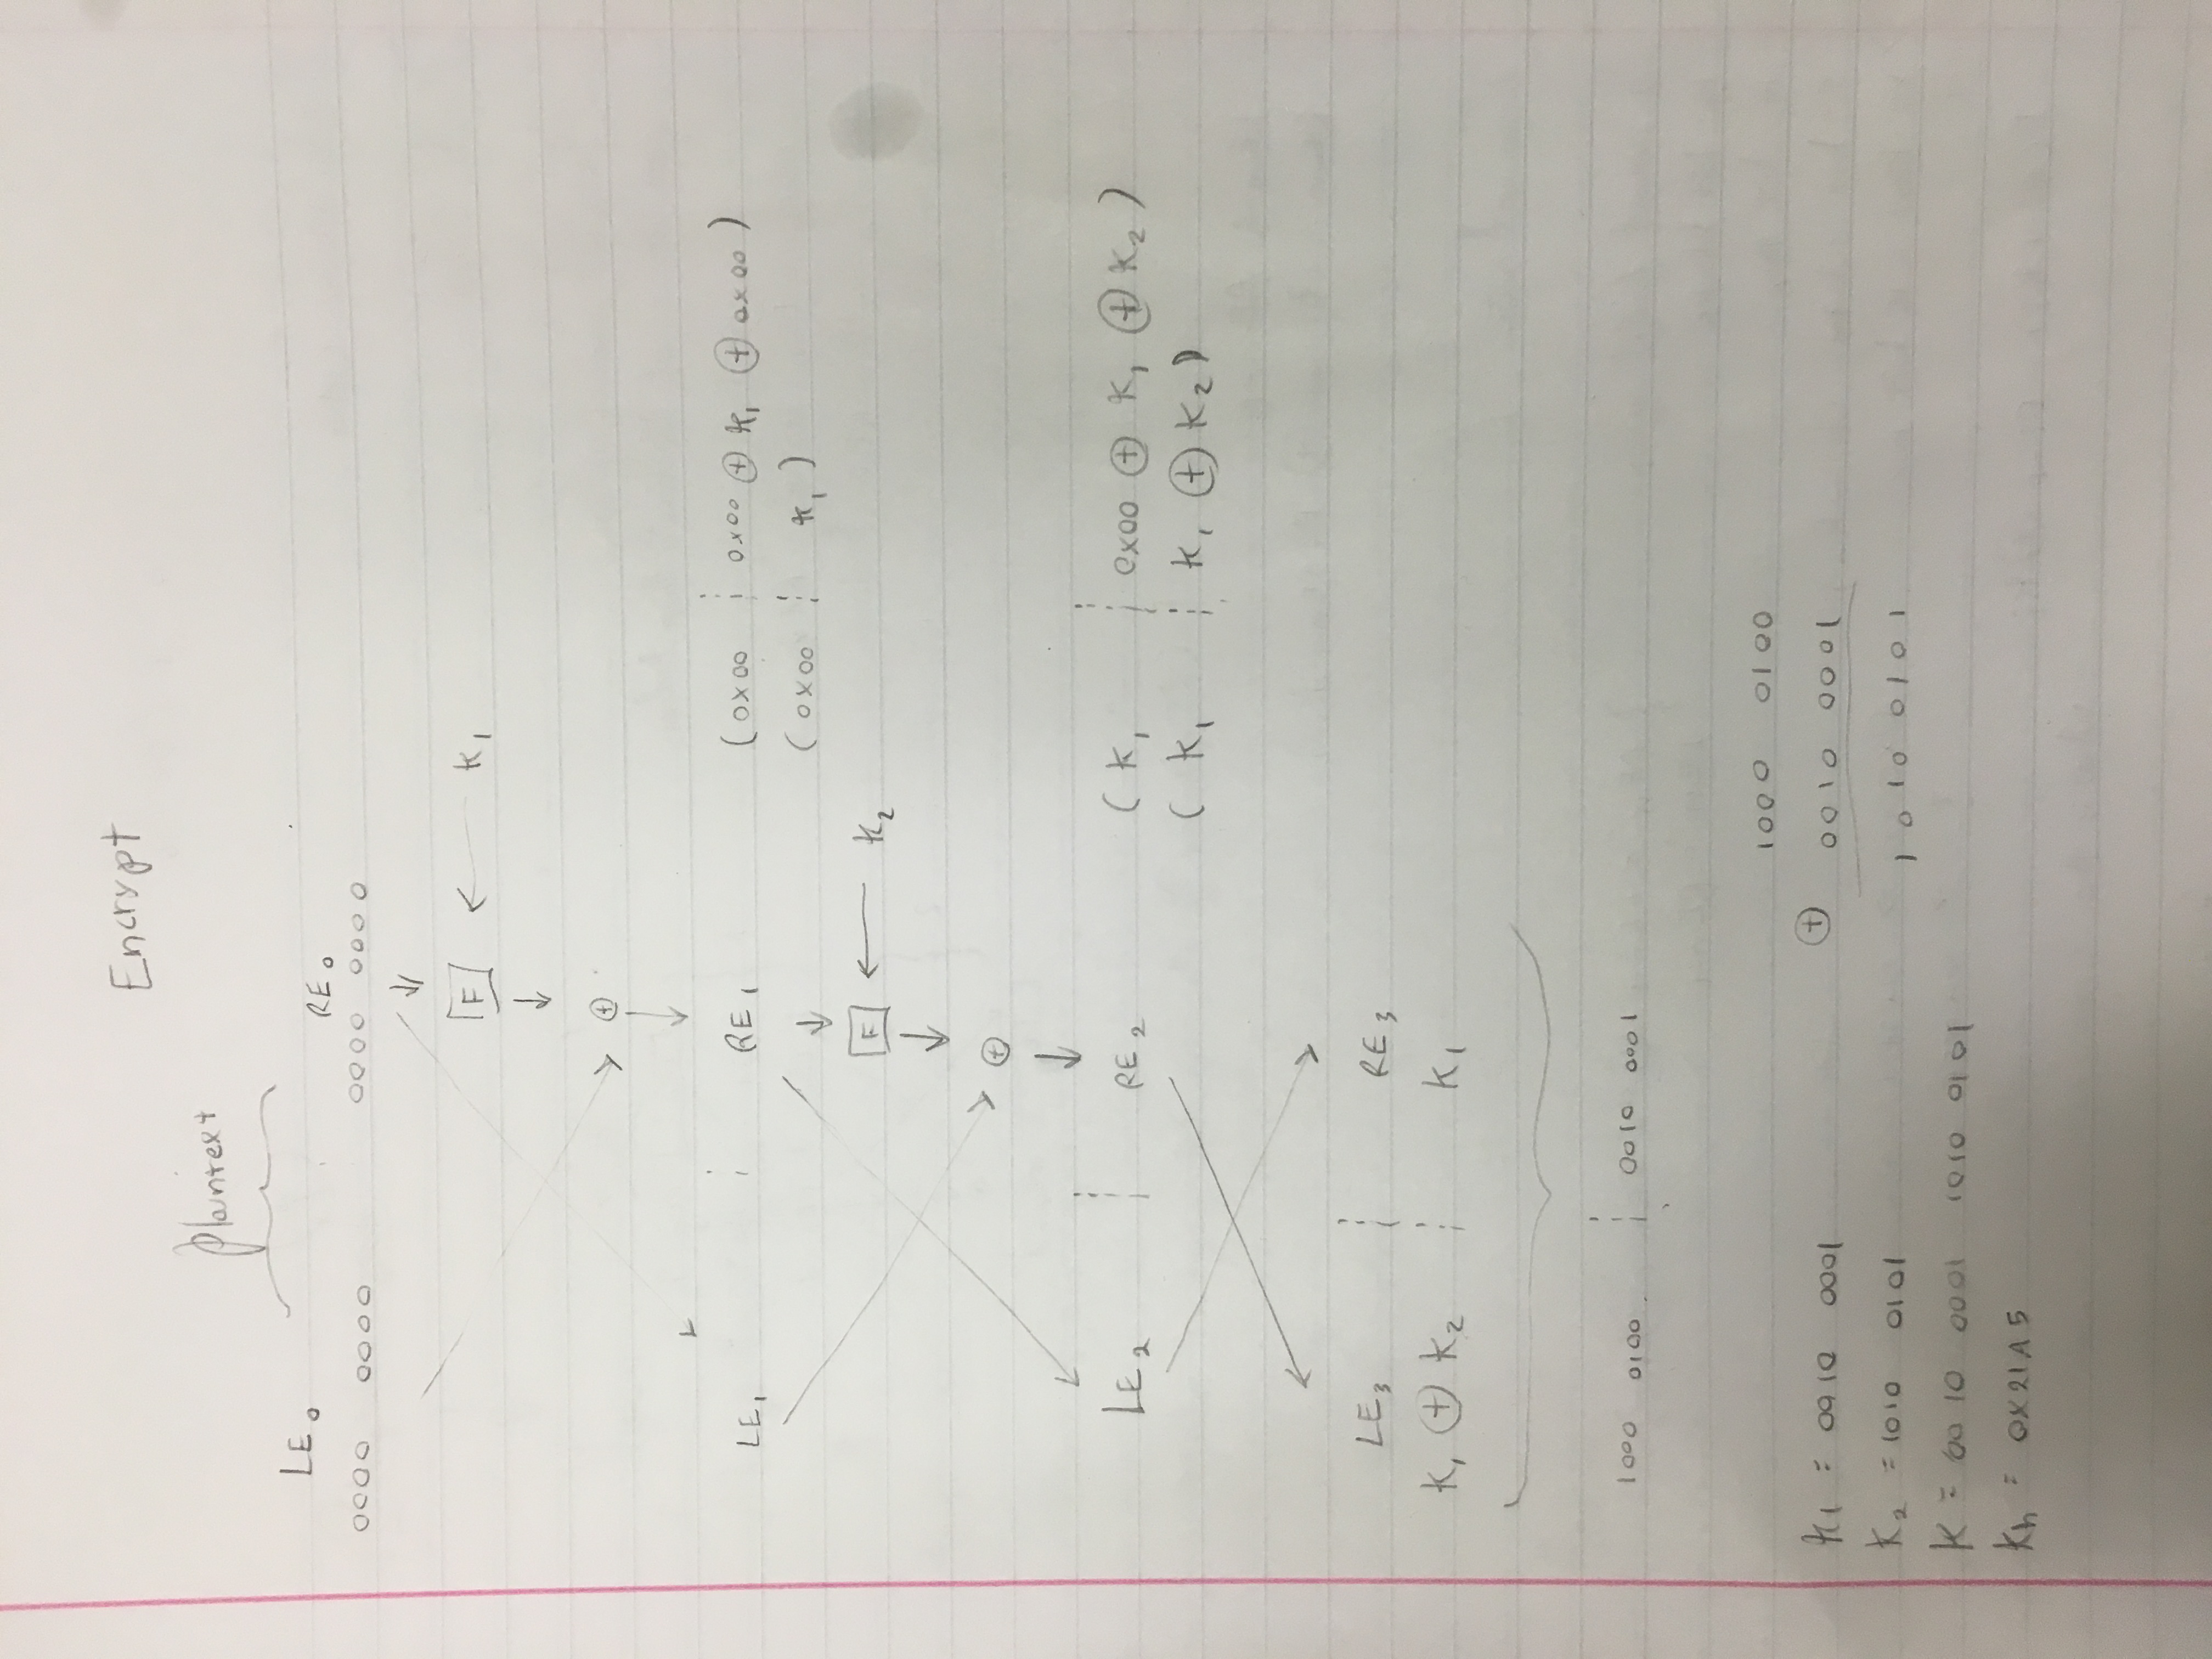 Encrypt
Plaintext
LE₀ RE₀
0000 0000 0000 0000
F ← K₁
⊕
LE₁ ¦ RE₁ (0x00 ¦ 0x00 ⊕ K₁ ⊕ 0x00)
(0x00 ¦ K₁)
F ← K₂
⊕
LE₂ ¦ RE₂ (K₁ ¦ 0x00 ⊕ K₁ ⊕ K₂)
(K₁ ¦ K₁ ⊕ K₂)
LE₃ ¦ RE₃
K₁ ⊕ K₂ ¦ K₁
1000 0100 ¦ 0010 0001
1000 0100
⊕ 0010 0001
1010 0101
K1 = 0010 0001
K₂ = 1010 0101
K = 0010 0001 1010 0101
Kh = 0x21A5